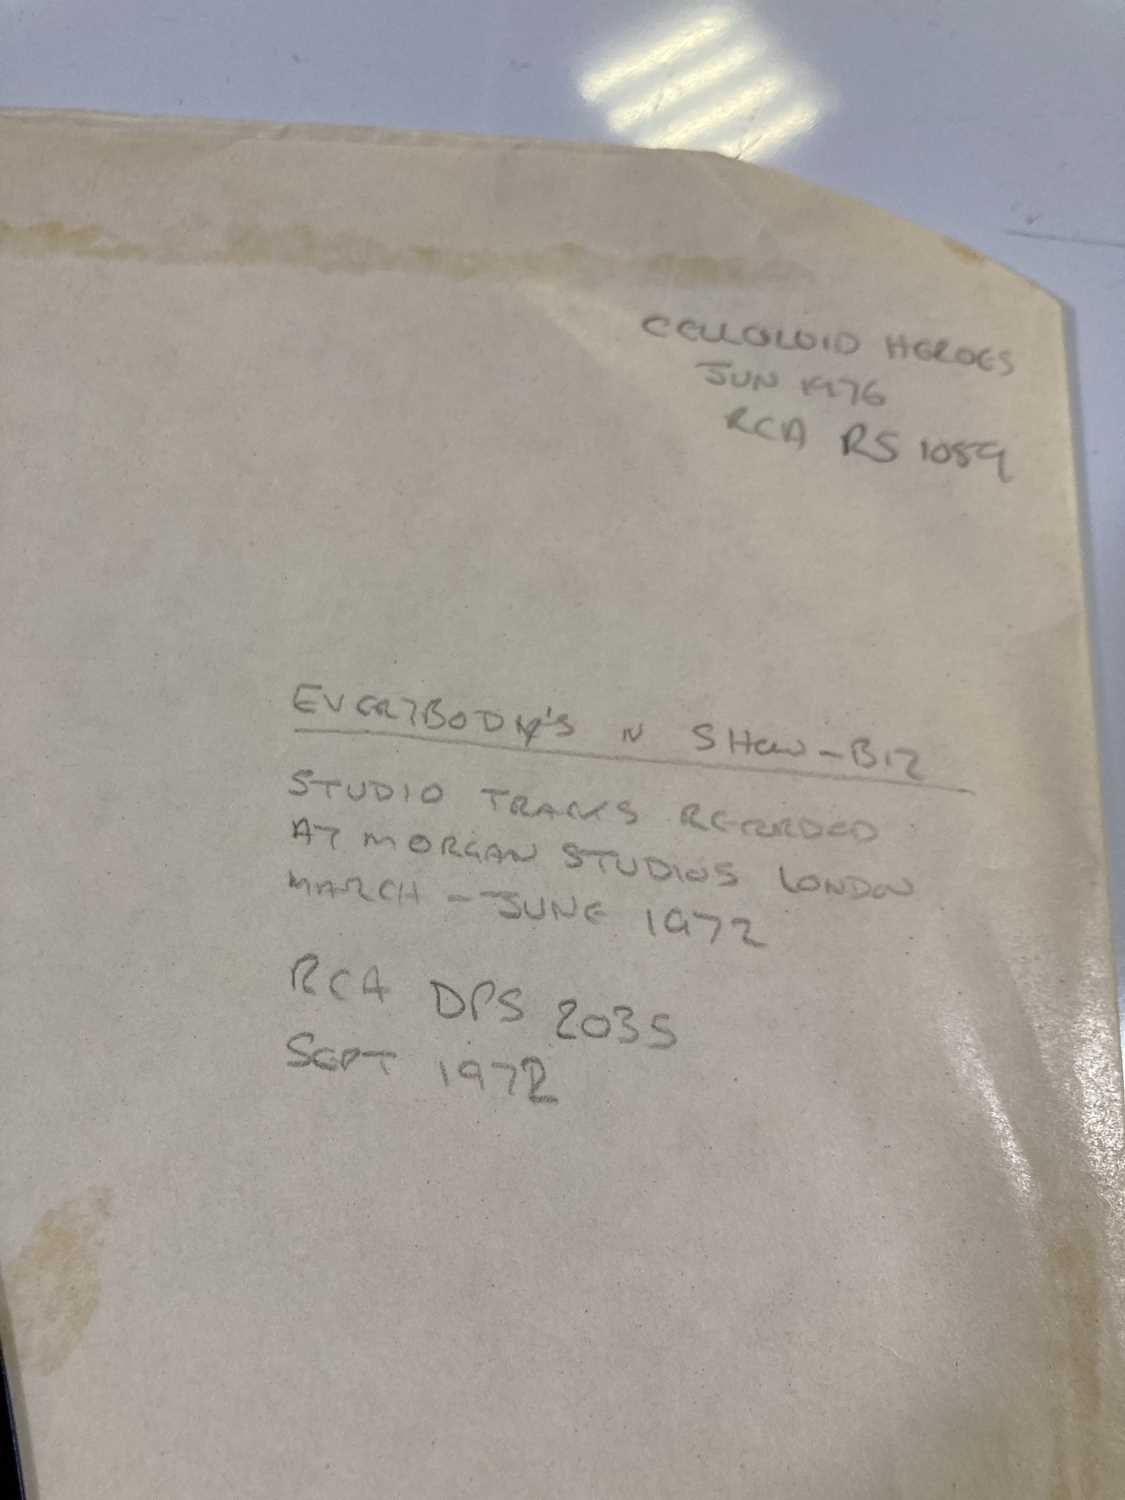 CELLOLOID HEROES
JUN 1976
RCA RS 1059
EVERYBODY'S N SHOW-BIZ
STUDIO TRACKS RECORDED
AT MORGAN STUDIOS LONDON
MARCH - JUNE 1972
RCA DPS 2035
SEPT 1972